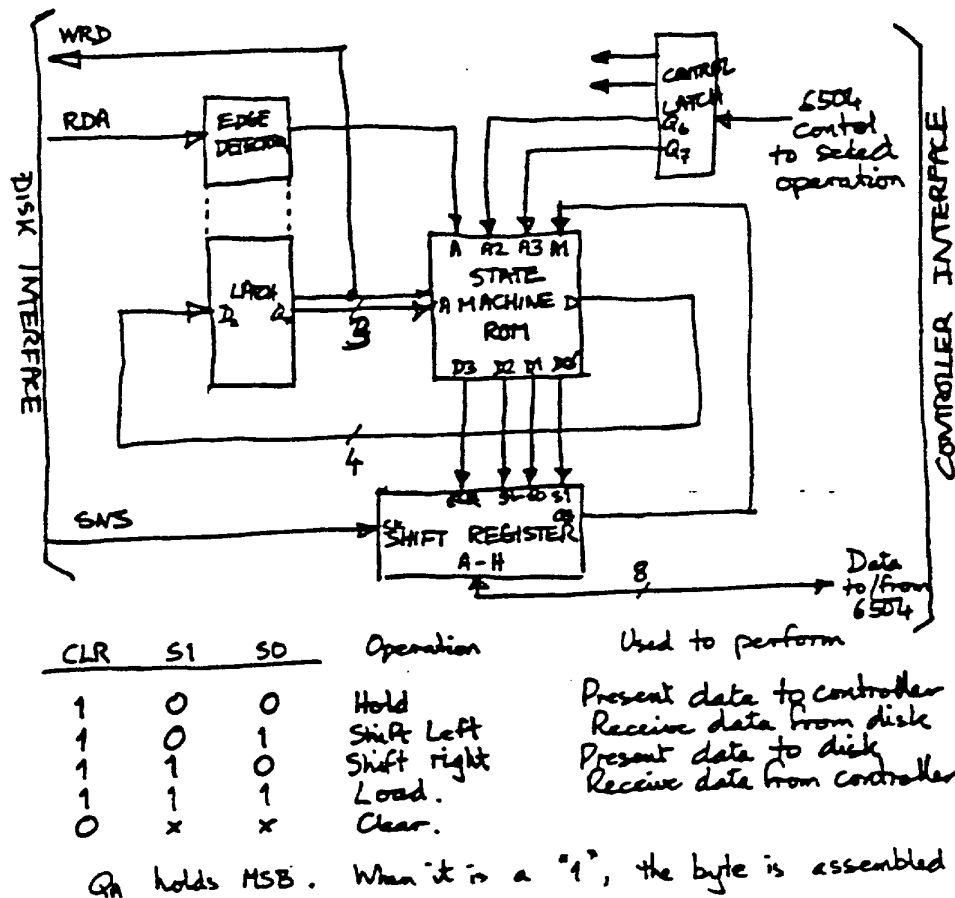 WRD
RDA
EDGE
DETECTOR
CONTROL
LATCH
Q6
Q7
6504
control
to select
operation
DISK INTERFACE
CONTROLLER INTERFACE
A A2 A3 A1
STATE
A MACHINE D
ROM
D3 D2 D1 D0
LATCH
3
4
SNS
SHIFT REGISTER
A-H
8
Data
to/from
6504
CLR S1 S0 Operation Used to perform
1 0 0 Hold Present data to controller
1 0 1 Shift Left Receive data from disk
1 1 0 Shift right Present data to disk
1 1 1 Load. Receive data from controller
0 x x Clear.
QA holds MSB. When it is a "1", the byte is assembled